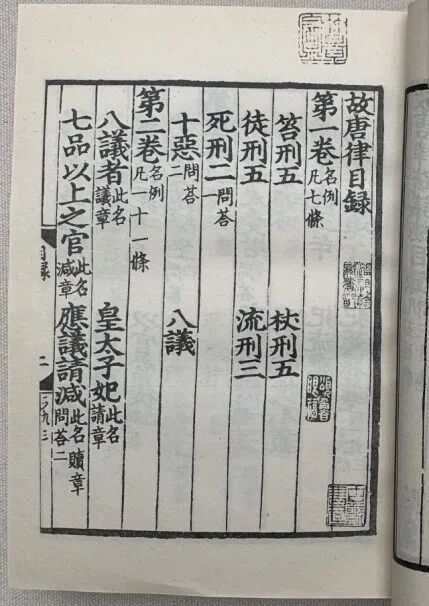 故唐律目録
第一卷 名例凡七條
笞刑五 杖刑五
徒刑五 流刑三
死刑二 問荅一
十惡 問荅二 八議
第二卷 名例凡一十一條
八議者 此名議章 皇太子妃 此名請章
七品以上之官 此名減章 應議請減 此名贖章問荅二
目録 二